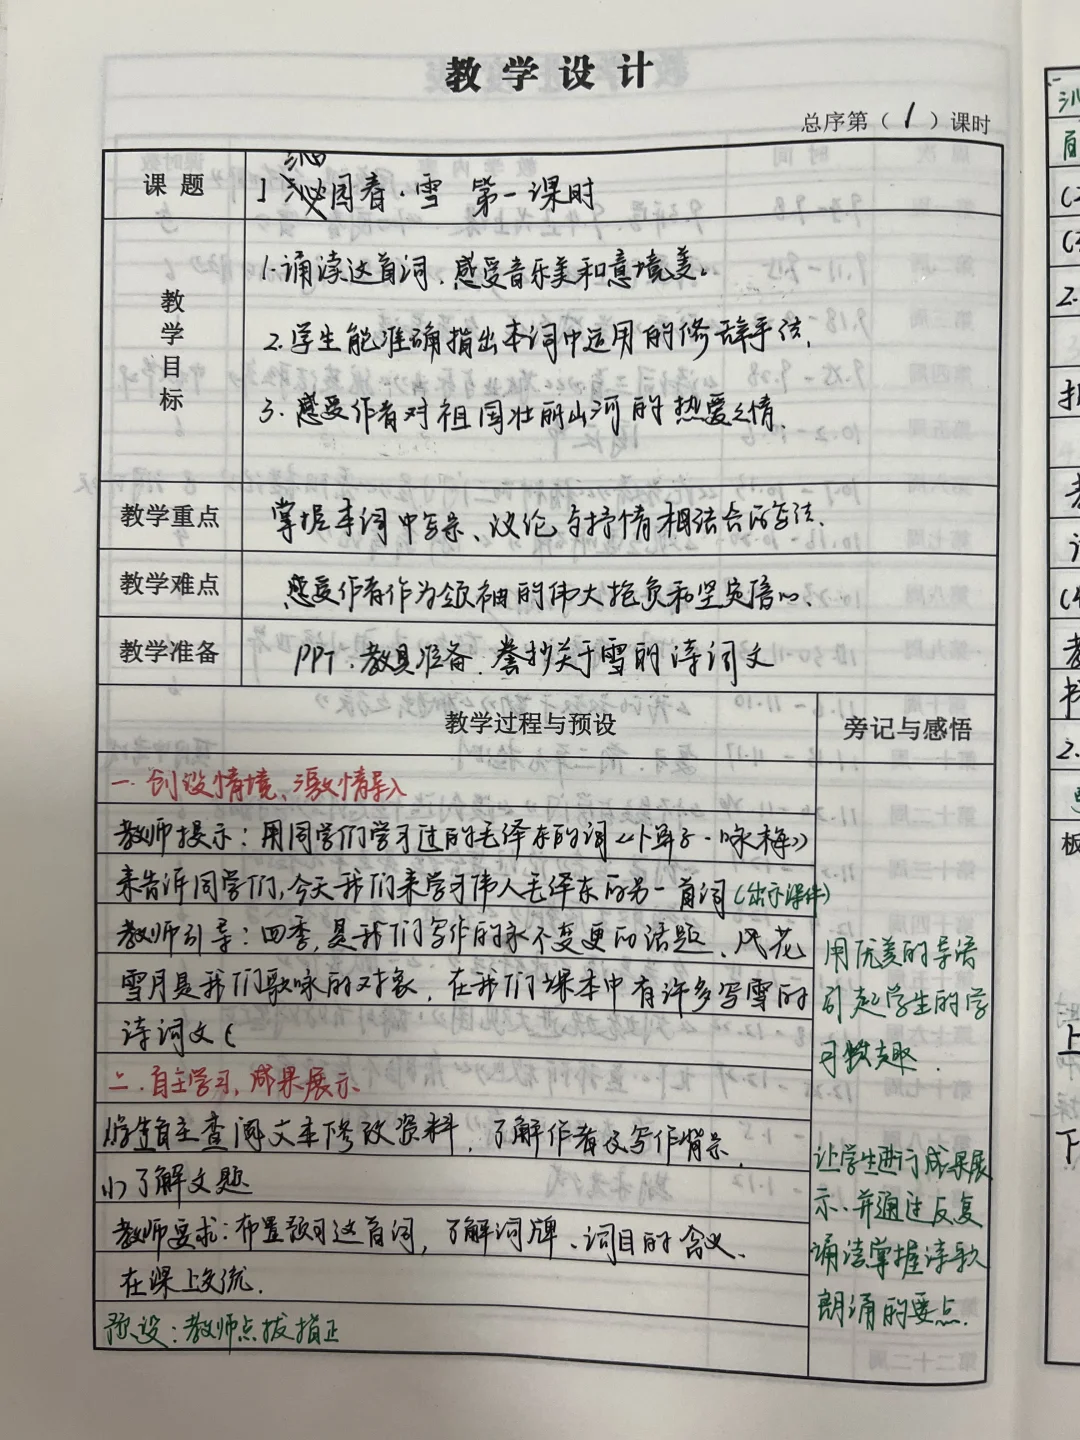 教学设计
总序第（1）课时
课题
1 沁园春·雪 第一课时
教学目标
1.诵读这首词，感受音乐美和意境美。
2.学生能准确指出本词中运用的修辞手法.
3.感受作者对祖国壮丽山河的热爱之情.
教学重点
掌握本词中写景、议论与抒情相结合的写法.
教学难点
感受作者作为领袖的伟大抱负和坚定信心、
教学准备
PPT、教具准备、誊抄关于雪的诗词文
教学过程与预设
旁记与感悟
一.创设情境、激情导入
教师提示：用同学们学习过的毛泽东的词《卜算子·咏梅》
来告诉同学们，今天我们来学习伟人毛泽东的另一首词（出示课件）
教师引导：四季，是我们写作的永不变更的话题、风花
雪月是我们歌咏的对象，在我们课本中有许多写雪的
诗词文（
二.自主学习，成果展示
1.学生自主查阅文本修改资料，了解作者及写作背景，
(1)了解文题
教师要求：布置预习这首词，了解词牌、词目的含义、
在课上交流.
预设：教师点拔指正
用优美的导语
引起学生的学
习兴趣.
让学生进行成果展
示、并通过反复
诵读掌握诗歌
朗诵的要点.